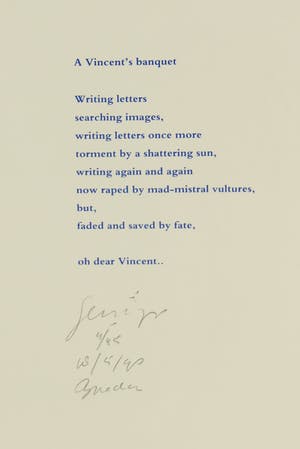 A Vincent's banquet
Writing letters
searching images,
writing letters once more
torment by a shattering sun,
writing again and again
now raped by mad-mistral vultures,
but,
faded and saved by fate,
oh dear Vincent..